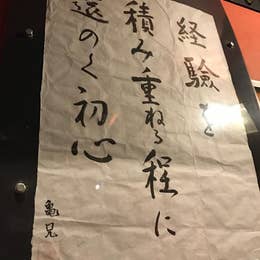 経験を
積み重ねる程に
遠のく初心
亀兄